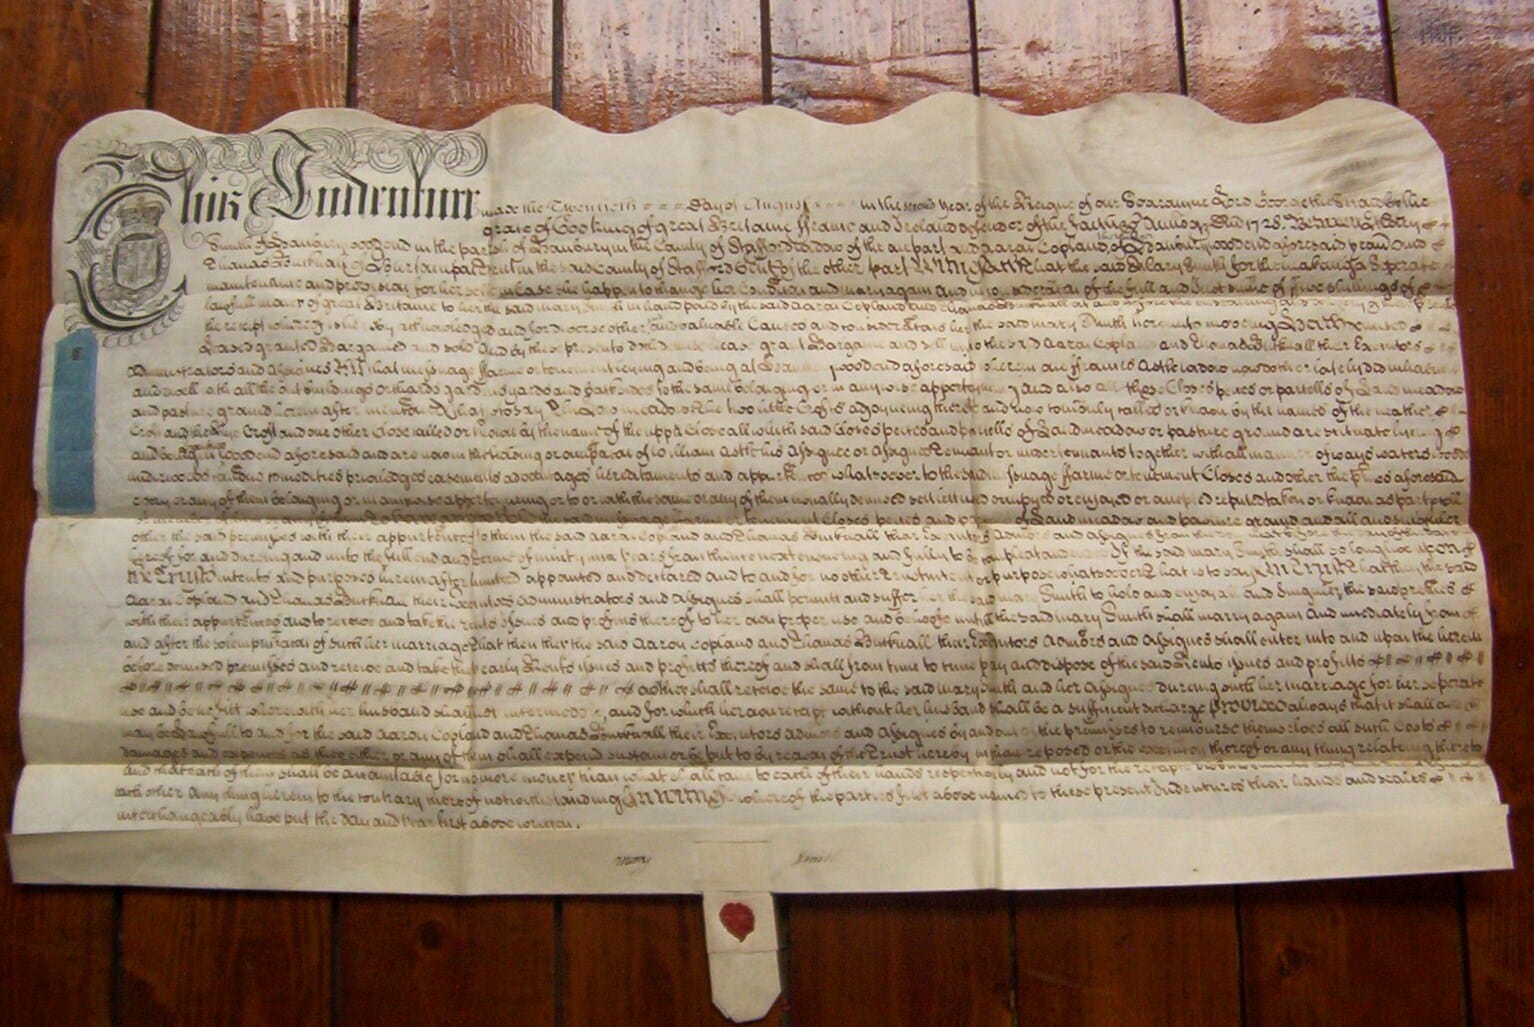 This Indenture made the Twentieth Day of August in the second year of the Reigne of our Soveraigne Lord George the Second by the
grace of God King of great Brittaine ffrance and Ireland defender of the faith &c Annoq Dni 1728. Between Mary
Smith of woodend in the parish of in the County of Stafford widow of the one part and Aaron Copland of woodend aforesaid and
Thomas of in the said County of Stafford Gent of the other part Witnesseth that the said Mary Smith for the makeing a Seperate
maintenance and provision for her selfe in Case she happen to change her Condition and marry again And in consideracion of the full and Just sume of five shillings of
lawfull money of great Brittaine to her the said Mary Smith in hand paid by the said Aaron Copland and Thomas at and before the
the receipt whereof is hereby acknowledged and for diverse other good and valuable Causes and considerations her the said Mary Smith hereunto moveing Hath demised
Leased granted Bargained and sold And by these presents doth demise lease grant Bargaine and sell unto the said Aaron Copland and Thomas their Executors
Administrators and Assignes All that messuage ffarme or tenement lyeing and being at woodend aforesaid wherein one ffrances widow now doth or lately did inhabit
and dwell with all the out buildings orchards gardens yards and backsides to the same belonging or in any wise apperteyning and also all those Closes peices or parcells of Land meadow
and pasture ground herein after menconed that is to say the two little Crofts adjoyneing thereto and used comonly called or known by the names of the neather
Croft and the Croft and one other Close called or knowne by the name of the upper Close all which said Closes peices and parcells of Land meadow or pasture ground are situate lyeing
and being in Woodend aforesaid and are now in the holding or occupacion of William his Assignee or Assignes Tennant or undertennants together with all manner of wayes waters woods
underwoods comons comodities priviledges easements advantages hereditaments and appurtences whatsoever to the said messuage ffarme or tenement Closes and other the premisses aforesaid
every or any of them belonging or in anywise apperteyneing or to or with the same or any of them usually demised sett lett used occupyed or enjoyed or accepted reputed taken or known as part parcell
the said messuage ffarme or tenement Closes peices and parcells of Land meadow and pasture ground and all and singuler
other the said premisses with their appurtences to them the said Aaron Copland and Thomas their Executors Admors and assignes from the
hereof for and dureing and unto the full end and terme of ninty nine Years from thence next ensueing and fully to be compleat and ended If the said Mary Smith shall so long live upon
the Trusts intents and purposes herein after limited appointed and declared and to and for no other Trust intent or purpose whatsoever that is to say In Trust that they the said
Aaron Copland and Thomas their Executors Administrators and Assignes shall permitt and suffer her the said Mary Smith to hold and enjoy all and singuler the said premisses
with their appurtences and to receive and take the rents issues and profitts thereof to her own proper use and behoofe untill the said Mary Smith shall marry again And imediately from
and after the solempnizacon of such her marriage that then they the said Aaron Copland and Thomas their Executors Admors and Assignes shall enter into and upon the herein
before demised premisses and receive and take the yearly Rents issues and profitts thereof and shall from time to time pay and dispose of the said Rents issues and profitts
as they shall receive the same to the said Mary Smith and her Assignes dureing such her marriage for her seperate
use and benefitt wherewith her husband shall not intermeddle, and for which her own receipt without her husband shall be a sufficient discharge Provided always that it shall and
may be Lawfull to and for the said Aaron Copland and Thomas their Executors admors and Assignes by and out of the premisses to reimburse themselves all such Costs
damages and expences as they either or any of them shall expend sustain or be put to by reason of the Trust hereby in them reposed or the execution thereof or any thing relateing thereto
and that each of them shall be answerable for no more money than what shall come to each of their hands respectively and not for the receipts
each other Any thing herein to the contrary thereof notwithstanding In Witness whereof the parties first above named to these present Indentures their hands and seales
interchangeably have put the Day and Year first above written.
Mary Smith